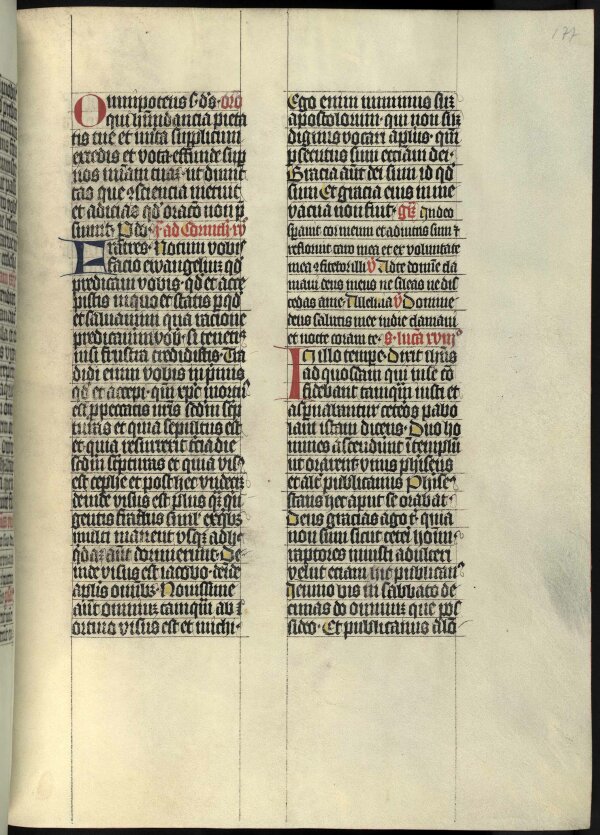 Omnipotens s ds oro
qui habundancia pieta
tis tue et mita supplicum
excedis et vota effunde sup
nos miam tuā ut dimit
tas que sciencia metuit
et adicias qd oraco non p
sumit P d ad Corinth xv
Fratres Notum vobis
facio ewangeliū qd
predicaui vobis qd et acce
pistis in quo et statis p qd
et saluamini qua racione
predicauim vob si teneti
nisi frustra credidistis Tra
didi enim vobis inpmis
qd et accepi qm xpc mortu
est p peccatis nris scdm scp
turas et quia sepultus est
et quia resurrexit tercia die
scdm scpturas et quia vis
est cephe et post hec vndeci
deinde visus est plus qz qn
gentis fratribus simul ex qbz
multi manent vsqz adhuc
qdaz aut dormierunt De
inde visus est iacobo deinde
aplis omibz Nouissime
aut omniuz tamqm ab
ortiuo visus est et michi
Ego enim minimus suz
apostolorum qui non suz
dignus vocari aplus qm
psecutus sum eccīam dei
Gracia aut dei sum id qd
sum Et gracia eius in me
vacua non fuit gr In deo
spauit cor meum et adiutus sum et
refloruit caro mea et ex voluntate
mea cfitebor illi v Ad te domine cla
maui deus meus ne sileas ne dis
cedas a me Alleluia v Domine
deus salutis mee in die clamaui
et nocte coram te s lucā xviii
In illo tempe Dixit ihus
ad quosdam qui in se co
fidebant tamqm iusti et
aspnabantur ceteros pabo
lam istam dicens Duo ho
mines ascendunt i templū
ut orarent vnus phiseus
et alt publicanus Phise
stans hec aput se orabat
Deus gracias ago t quia
non sum sicut ceteri homi
raptores iniusti adulteri
velut eciam hic publican
Ieiuno bis in sabbato de
cimas do omniuz que pos
sideo Et publicanus a lō
177